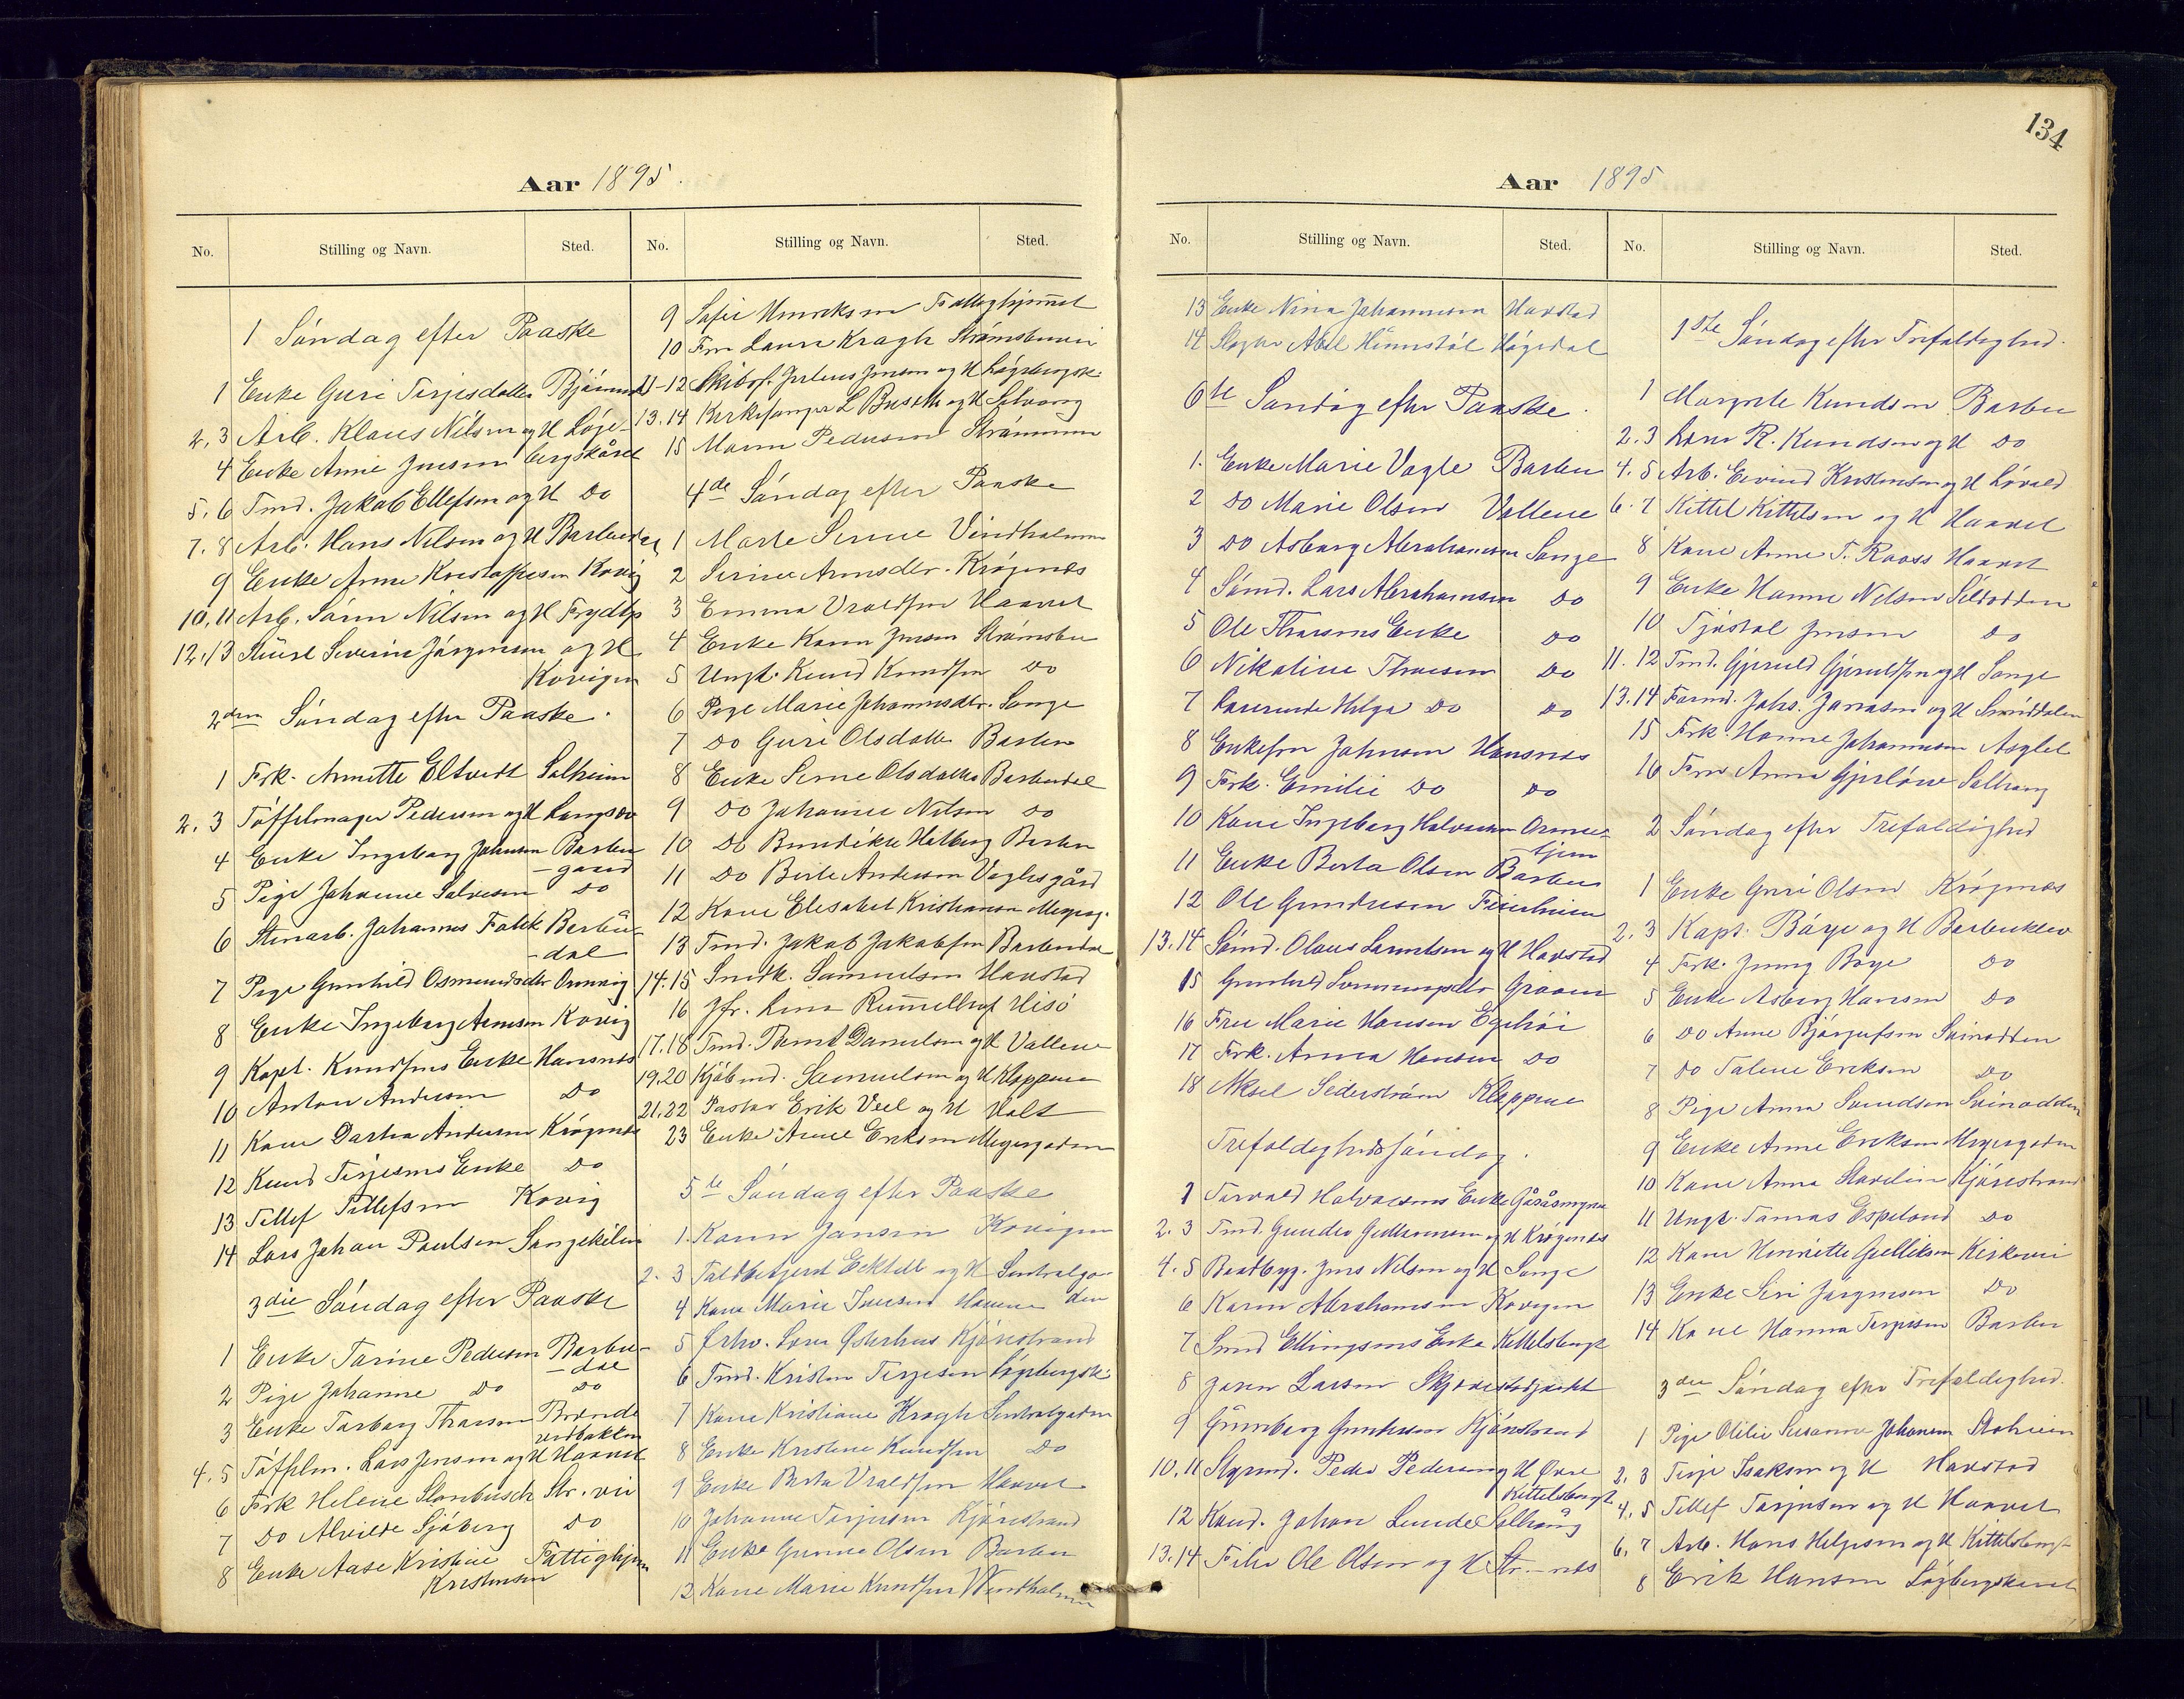 Aar 1895.
No. Stilling og Navn. Sted.
1 Søndag efter Paaske
1 Enke Guri Terjesdatter
2, 3 Arb. Klaus Nilsen og H Løge-
4 Enke Anne Jensen bergskåret
5, 6 Tmd. Jakob Ellefsen og H Do
7. 8 Arb. Hans Nilsen og H Barbudal
9 Enke Anne Kristoffersen Kovig
10, 11 Arb. Søren Nilsen og H
12, 13 Severin Jørgensen og H
Kovigen
2den Søndag efter Paaske.
1 Frk. Annette Eltvedt Solheim
2. 3 Tøffelmager Pedersen og H Langsev
4 Enke Ingeborg Johnsen Barbu
-gaard
5 Pige Johanne Salvesen Do
6 Stenarb. Johannes Falk Barbu-
-dal
7 Pige Gunhild Osmundsdtr
8 Enke Ingeborg Arnesen Kovig
9 Kapt. Knudsens Enke Hansnæs
10 Anton Andersen Do
11 Kone Dorthea Andersen Krøgenæs
12 Knud Terjesens Enke Do
13 Tellef Tellefsen Kovig
14 Lars Johan Paulsen Songekilen
3die Søndag efter Paaske
1 Enke Tarine Pedersen Barbu-
-dal
2 Pige Johanne Do Do
3 Enke Torborg Thorsen Brænde
vedbakken
4. 5 Tøffelm. Lars Jensen og H Haavet
6 Frk Helene Str. vei
7 Do Alvilde Sjøberg Do
8 Enke Aase Kristine Fattighjem
Kristensen
No. Stilling og Navn. Sted.
9 Sofie Henriksen Fattighjemmet
10 Fru Laura Kragh Strømsbuvei
11-12 Skibsf. Julius Jensen og H Løgebergsk.
13. 14 Kirkesanger L Buseth og H Solvang
15 Maren Pedersen Strømmen
4de Søndag efter Paaske
1 Marte Serine Vindholmen
2 Serine Arnesdtr. Krøgenæs
3 Emma Vraldsen Haavet
4 Enke Karen Jensen Strømsbu
5 Ungk. Knud Knudsen Do
6 Pige Marie Johannesdtr. Songe
7 Do Guri Olsdatter Barbu
8 Enke Serine Olsdatter Barbudal
9 Do Johanne Nilsen Do
10 Do Bendikte Hatberg Barbu
11 Do Berte Andersen Voglesgård
12 Kone Elisabet Kristiansen Meyerg.
13 Tmd. Jakob Jakobsen Barbudal
14. 15 Snedk. Samuelsen Havstad
16 Jfr. Lina Rummelhof Hisø
17. 18 Tmd. Bernt Danielsen og H Vallene
19. 20 Kjøbmd. Samuelsen og H Kloppene
21. 22 Pastor Erik Veel og H Holt
23 Enke Anne Eriksen Meyergaden
5te Søndag efter Paaske
1. Karen Jansen Kovigen
2. 3 Toldbetjent og H Sentralga-
4 Kone Marie Iversen Havene den
5 Ørhv. Lars Østerhus Kjørestrand
6 Tmd. Kristen Terjesen Løgebergsk.
7 Kone Kristiane Kragh Sentralgaden
8 Enke Kristine Knudsen Do
9 Enke Berta Vraldsen Haavet
10 Johanne Terjesen Kjørestrand
11 Enke Gunne Olsen Barbu
12 Kone Marie Knudsen Vindholmen
134
Aar 1895
No. Stilling og Navn. Sted.
13 Enke Nina Johannesen Havstad
14 Slagter Abel Himmstøl Høgedal
6te Søndag efter Paaske.
1. Enke Marie Vogle Barbu
2 Do Marie Olsen Vallene
3 Do Asborg Abrahamsen Songe
4 Sømd. Lars Abrahamsen Do
5 Ole Thorsens Enke Do
6 Nikoline Thorsen Do
7 Lærerinde Helga Do Do
8 Enkefru Johnsen Hansnæs
9 Frk. Emilie Do Do
10 Kone Ingeborg Halvorsen Orme-
-tjern
11 Enke Berta Olsen Barbu
12 Ole Gundersen
13. 14 Sømd. Olaus Larsen og H Havstad
15 Gunhild Graaen
16 Frue Marie Hansen Egehøi
17 Frk. Anna Hansen Do
18 Aksel Sederstrøm Kloppene
Trefoldighedssøndag.
1 Torvald Halvorsens Enke Gåsåsmyren
2. 3 Tmd. Gunder Guttormsen og H Krøgenæs
4. 5 Baadbyg. Jens Nilsen og H Songe
6 Karen Abrahamsen Kovigen
7 Smed Ellingsens Enke Kittelsbugt
8 Larsen
9 Gunborg Gundersen Kjørestrand
10. 11 Styrmd. Peder Pedersen og H Øvre
Kittelsbugt
12 Kand. Johan Lunde Solhaug
13. 14 Filer Ole Olsen og H Str.-næs
No. Stilling og Navn. Sted.
1ste Søndag efter Trefoldighed.
1 Margrete Knudsen Barbu
2. 3 Lars R. Knudsen og H Do
4. 5 Arb. Eivind Kristensen og H Løvold
6. 7 Kittel Kittelsen og H Haavet
8 Kone Anne T. Raass Haavet
9 Enke Hanne Nilsen Sildodden
10 Tjøstol Jensen Do
11. 12 Tmd. Gjeruld Gjeruldsen og H Songe
13. 14 Formd. Johs. Jonassen og H Smeddalen
15 Frk. Hanne Johannesen
16 Fru Anna Solhaug
2 Søndag efter Trefoldighed
1 Enke Guri Olsen Krøgenæs
2. 3 Kapt. Bøye og H Barbuklev
4 Frk. Jenny Boye Do
5 Enke Asborg Hansen Do
6 Do Anne Bjørgufsen Svinodden
7 Do Taline Eriksen Do
8 Pige Anna Svendsen Svinodden
9 Enke Anne Eriksen Meyergaden
10 Kone Anna Kjørestrand
11 Ungk. Tomas Espeland Do
12 Kone Henriette Gulliksen Kirkevei
13 Enke Siri Jørgensen Do
14 Kone Hanna Terjesen Barbu
3die Søndag efter Trefoldighed.
1 Pige Otilie Susanne Johansen
2. 3 Terje Isaksen og H Havstad
4. 5 Tellef Terjesen og H Haavet
6. 7 Arb. Hans Helgesen og H Kittelsbugt
8 Erik Hansen Løgbergskåret